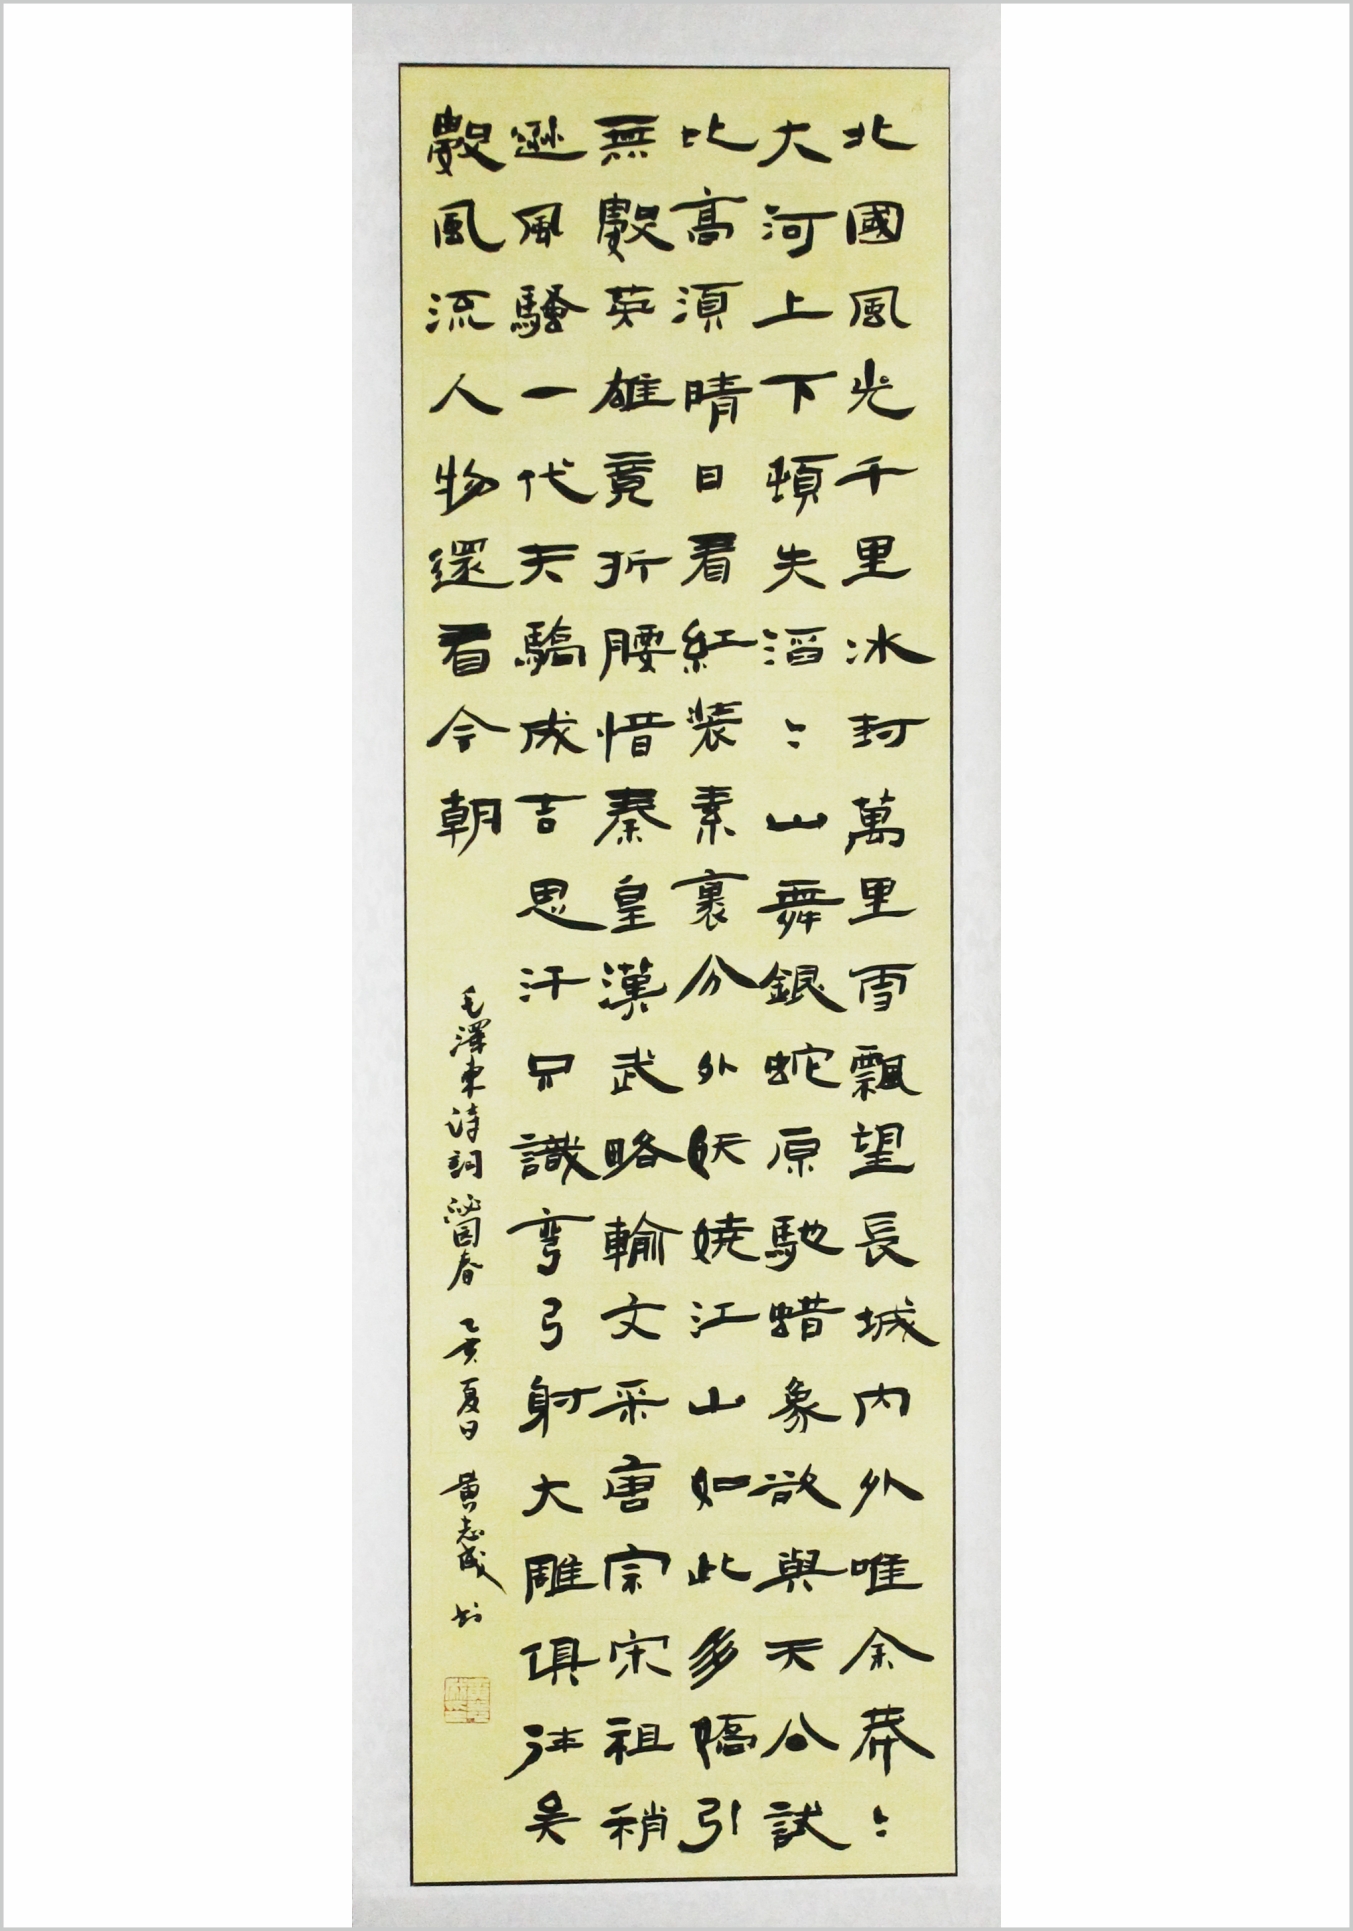 北國風光千里冰封萬里雪飄望長城内外唯余莽〻
大河上下頓失滔〻山舞銀蛇原馳蜡象欲與天公試
比高須晴日看紅裝素裹分外妖嬈江山如此多嬌引
無數英雄竟折腰惜秦皇漢武略輸文采唐宗宋祖稍
遜風騷一代天驕成吉思汗只識彎弓射大雕俱往矣
數風流人物還看今朝
毛澤東詩詞沁園春 乙亥夏日 黄志成书